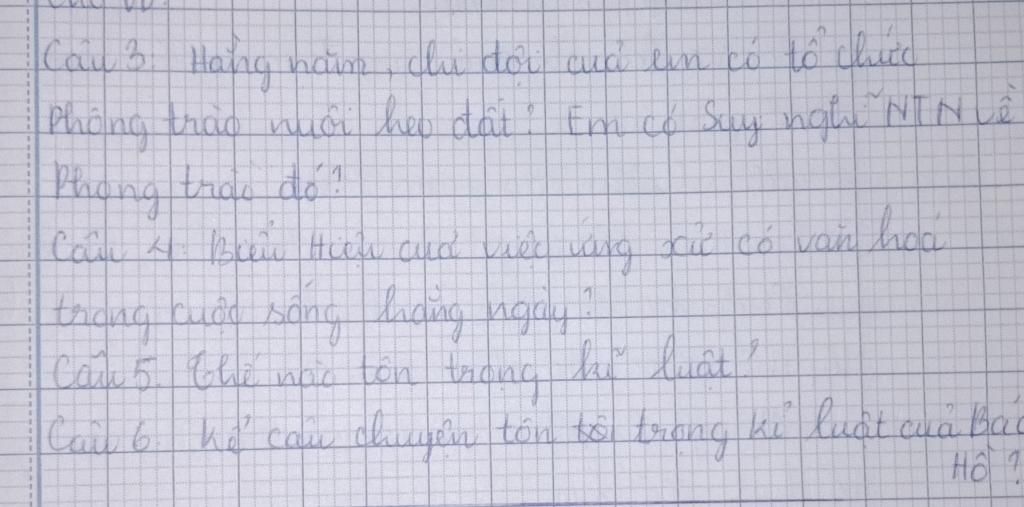 Câu 3. Hằng năm, chi đội của em có tổ chức
phong trào nuôi heo đất? Em có suy nghĩ NTN về
phong trào đó?
Câu 4. Biểu hiện của việc ứng xử có văn hoá
trong cuộc sống hằng ngày?
Câu 5. Thế nào tôn trọng kỉ luật?
Câu 6. Kể câu chuyện tôn trọng kỉ luật của Bác
Hồ?